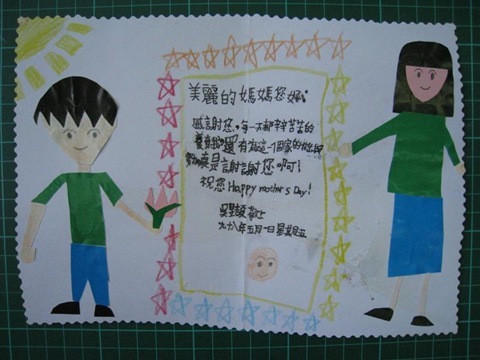 美麗的媽媽您好:
感謝您,每一天都辛辛苦苦的
養育我還有為這一個家的付出
真是謝謝您啊!
祝您Happy mother's Day!
敬上
九十八年五月一日星期五